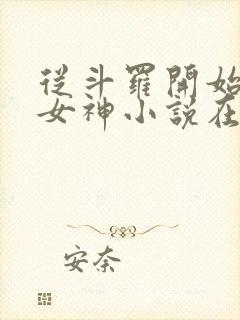 從斗羅開始
女神小說在
安奈